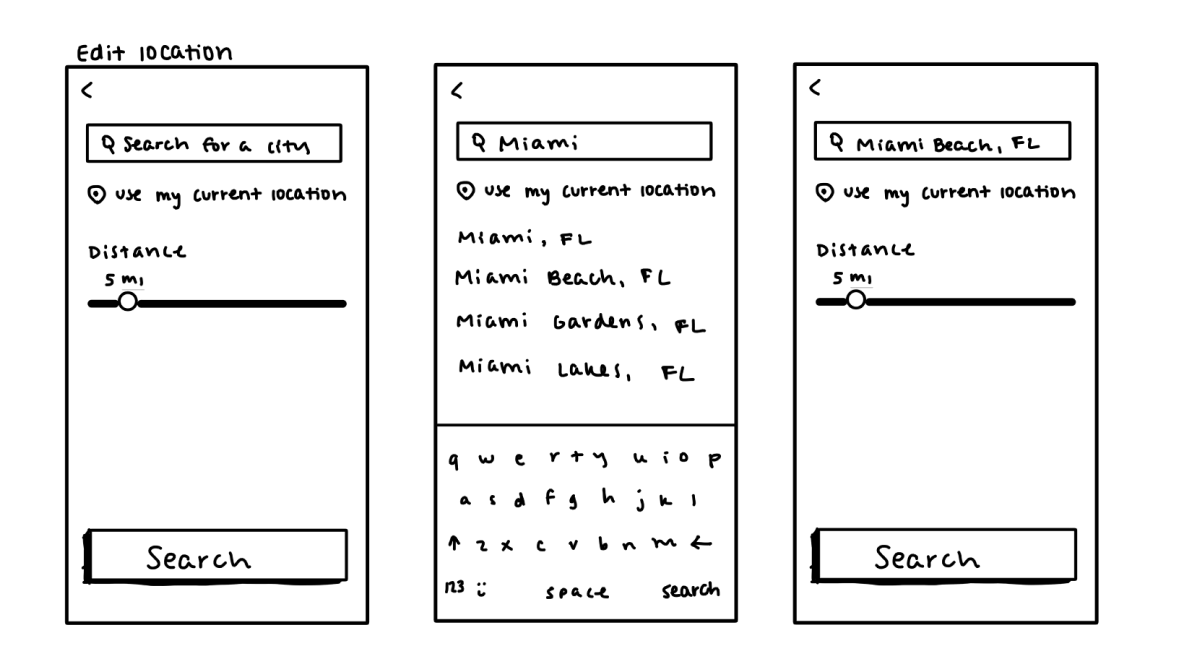 Edit location
<
Search for a city
use my current location
Distance
5 mi
Search
<
Miami
use my current location
Miami, FL
Miami Beach, FL
Miami Gardens, FL
Miami Lakes, FL
q w e r t y u i o p
a s d f g h j k l
↑ z x c v b n m ←
123 :) space search
<
Miami Beach, FL
use my current location
Distance
5 mi
Search